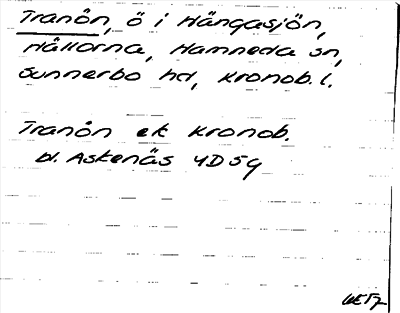 Tranön, ö i Hängasjön,
Hållorna, Hamneda sn,
Sunnerbo hd, Kronob. l.
Tranön ek Kronob.
bl. Askenäs 4D 5g